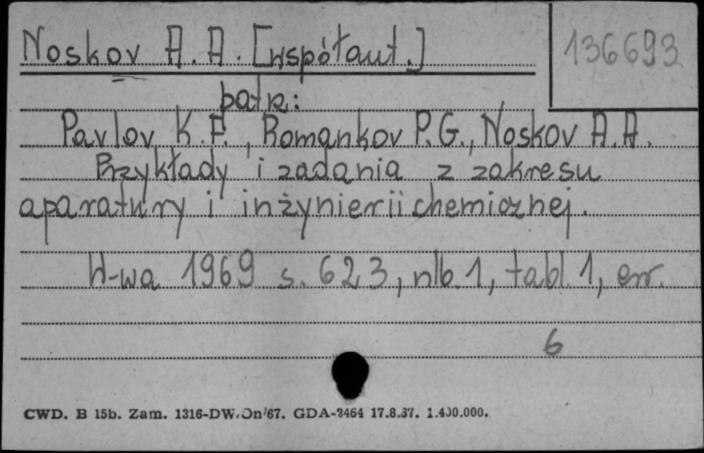 Noskov A. A. [współaut.]
136693
patrz:
Pavlov K.F., Romankov P.G., Noskov A.A.
Przykłady i zadania z zakresu
aparatury i inżynierii chemicznej.
W-wa 1969 s. 623, nlb. 1, tabl. 1, err.
6
CWD. B 15b. Zam. 1316-DW.On/67. GDA-2464 17.8.67. 1.400.000.